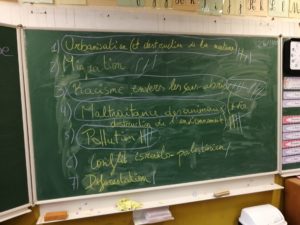 1) Urbanisation (et destruction de la nature)
2) Migration
3) Racisme envers les sans-abris
4) Maltraitance des animaux
destruction de l'environnement
5) Pollution
6) Conflit israélo-palestinien
7) Déforestation